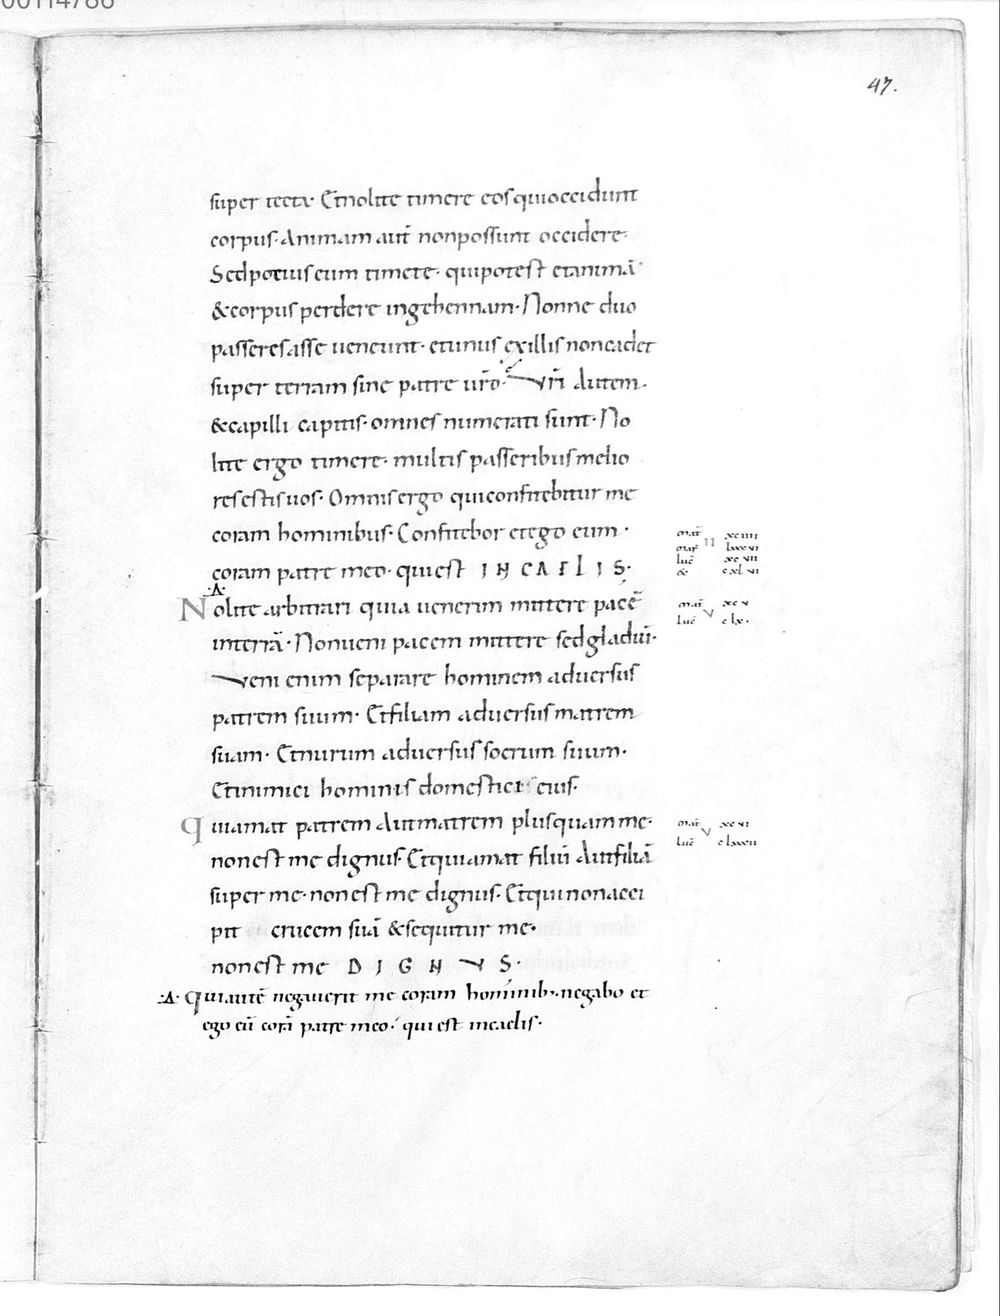 47.
super tecta· Et nolite timere eos qui occidunt
corpus· Animam aut̄ non possunt occidere·
Sed potius eum timete· qui potest et animā
& corpus perdere in gehennam· Nonne duo
passeres asse ueneunt· et unus ex illis non cadet
super terram sine patre ur̄o· Vr̄i autem
& capilli capitis· omnes numerati sunt· No
lite ergo timere· multis passeribus melio
res estis uos· Omnis ergo qui confitebitur me
coram hominibus· Confitebor et ego eum·
coram patre meo· qui est IN CAELIS·
·A·
Nolite arbitrari quia uenerim mittere pacē
in terrā· Non ueni pacem mittere sed gladiū·
Veni enim separare hominem aduersus
patrem suum· Et filiam aduersus matrem
suam· Et nurum aduersus socrum suum·
Et inimici hominis domestici eius·
Qui amat patrem aut matrem plus quam me·
non est me dignus· Et qui amat filiū aut filiā
super me· non est me dignus· Et qui non acci
pit crucem suā & sequitur me·
non est me DIGNVS·
·A· Qui autē negauerit me coram hominib;· negabo et
ego eū corā patre meo· qui est in caelis·
mat̄ II xciiii
mar̄ lxxxvi
luc̄ xcvii
& cxlvi
mat̄ V xcv
luc̄ clx·
mat̄ V xcvi
luc̄ clxxxii